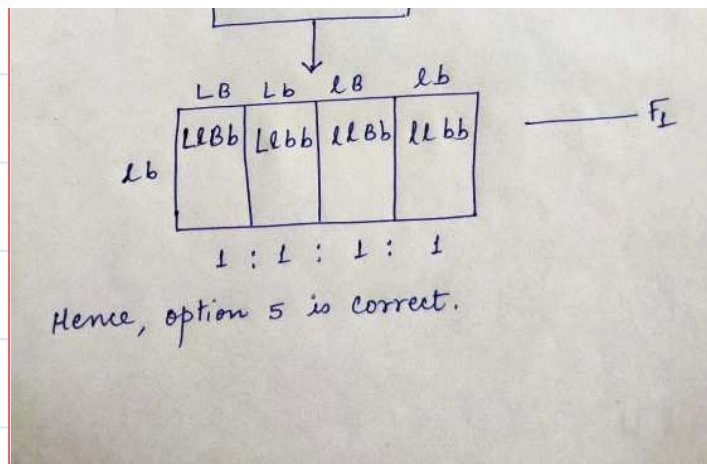 LB Lb lB lb
LlBb Llbb llBb llbb F1
lb
1 : 1 : 1 : 1
Hence, option 5 is correct.